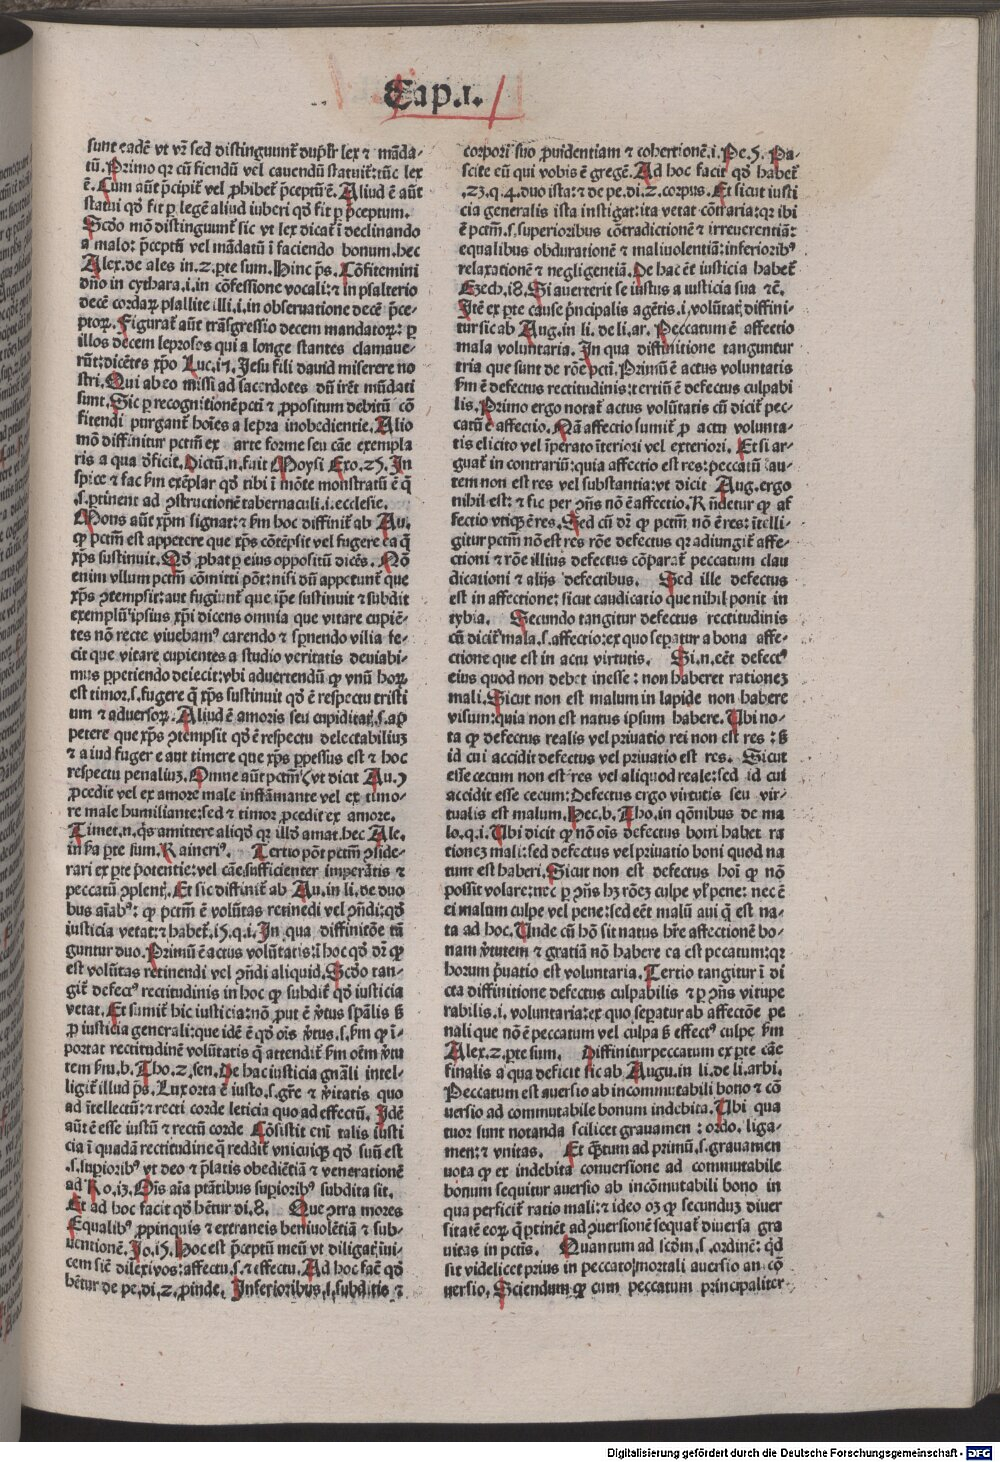 Cap.i.
sunt eadē vt vr̄ sed distinguunt̄ dupl̄r lex ⁊ māda-
tū. Primo qꝛ cū fiendū vel cauendū statuit̄: tūc lex
ē. Cum aūt p̄cipit̄ vel ꝓhibet̄ p̄ceptū ē. Aliud ē aūt
statui qd̓ fit ꝑ legē aliud iuberi qd̓ fit ꝑ p̄ceptum.
Scd̓o mō distinguunt̄ sic vt lex dicat̄ ī declinando
a malo: p̄ceptū vel mādatū ī faciendo bonum. hec
Alex. de ales in .2. ꝑte sum. Hinc p̄s. Cōfitemini
dn̄o in cythara .i. in cōfessione vocali: ⁊ in psalterio
decē cordaꝝ psallite illi .i. in obseruatione decē p̄ce-
ptoꝝ. Figurat̄ aūt trāsgressio decem mandatoꝝ: ꝑ
illos decem leprosos qui a longe stantes clamaue-
rūt: dicētes xp̄o Luc. 17. Jesu fili dauid miserere no
stri. Qui ab eo missi ad sacerdotes dū irēt mūdati
sunt. Sic ꝑ recognitionē pctī ⁊ ꝓpositum debitū cō
fitendi purgant̄ hoīes a lepra inobedientie. Alio
mō diffinitur pctm̄ ex arte forme seu cāe exempla
ris a qua d̓ficit. Dictū .n. fuit Moysi Exo. 25. In
spice ⁊ fac ẜm exēplar qd̓ tibi ī mōte monstratū ē q̄
.s. ꝑtinent ad ꝯstructionē tabernaculi .i. ecclesie.
Mons aūt xp̄m signat: ⁊ ẜm hoc diffinit̄ ab Au.
ꝙ pctm̄ est appetere que xp̄s cōtēpsit vel fugere ea q̄
xp̄s sustinuit. Qd̓ ꝓbat ꝑ eius oppositū dicēs. Nō
enim vllum pctm̄ cōmitti pōt: nisi dū appetunt̄ que
xp̄s ꝯtempsit: aut fugiunt̄ que ip̄e sustinuit ⁊ subdit
exemplū ipsius xp̄i dicens omnia que vitare cupiē-
tes nō recte viuebamꝰ carendo ⁊ sp̄nendo vilia fe-
cit que vitare cupientes a studio veritatis deuiabi-
mus ꝑpetiendo deiecit: vbi aduertendū ꝙ vnū hoꝝ
est timor .s. fugere q̄ xp̄s sustinuit qd̓ ē respectu tristi
um ⁊ aduersoꝝ. Aliud ē amoris seu cupiditat̄ .s. ap
petere que xp̄s ꝯtempsit qd̓ ē respectu delectabiliuꝫ
⁊ aliud fugere aut timere que xp̄s ꝑpessus est ⁊ hoc
respectu penaliuꝫ. Omne aūt pctm̄ (vt dicit Au.)
ꝓcedit vel ex amore male inflāmante vel ex timo-
re male humiliante: sed ⁊ timor ꝓcedit ex amore.
Timet .n. q̄s amittere aliqd̓ qꝛ illd̓ amat. hec Ale.
in ẜa ꝑte sum. Rainerꝰ. Tertio pōt pctm̄ ꝯside-
rari ex ꝑte potentie: vel cāe sufficienter imperātis ⁊
peccatū ꝯplent̄. Et sic diffinit̄ ab Au. in li. de duo
bus aīabꝰ: ꝙ pctm̄ ē volūtas retinedi vel ꝯn̄di: qd̓
iusticia vetat: ⁊ habet̄ .15. q. i. In qua diffinitōe tā
guntur duo. Primū ē actus volūtatis: ī hoc qd̓ dr̄ ꝙ
est volūtas retinendi vel ꝯn̄di aliquid. Scd̓o tan-
git̄ defectꝰ rectitudinis in hoc ꝙ subdit̄ qd̓ iusticia
vetat. Et sumit̄ hic iusticia: nō put ē v̄tus sp̄alis ẜ
ꝓ iusticia generali: que idē ē qd̓ ois v̄tus .s. ẜm ꝙ ī-
portat rectitudinē volūtatis q̄ attendit̄ ẜm oēm v̄tu
tem ẜm .b. Tho. 2. sen. De hac iusticia gn̄ali intel-
ligit̄ illud p̄s. Lux orta ē iusto .s. gr̄e ⁊ v̄itatis quo
ad ītellectū: ⁊ recti corde leticia quo ad effectū. Idē
aūt ē esse iustū ⁊ rectū corde Cōsistit eni talis iusti
cia ī quadā rectitudine q̄ reddit̄ vnicuiqꝫ qd̓ suū est
.s. supioribꝰ vt deo ⁊ p̄latis obediētiā ⁊ venerationē
ad Ro. 13. Oīs aīa ptātibus supioribꝰ subdita sit.
Et ad hoc facit qd̓ hētur di. 8. Que ꝯtra mores
Equalibꝰ ꝓpinquis ⁊ extraneis beniuolētiā ⁊ sub-
uentionē. Jo. 15. Hoc est p̄ceptū meū vt diligat̄ īui-
cem sic̄ dilexi vos: affectu .s. ⁊ effectu. Ad hoc fac̄ qd̓
hētur de pe. di. 2. ꝓinde. Inferioribus .s. subditis ⁊
corpori suo ꝓuidentiam ⁊ cohertionē .i. Pe. 5. Pa-
scite eū qui vobis ē gregē. Ad hoc facit qd̓ habet̄
.23. q. 4. duo ista: ⁊ de pe. di. 2. corpus. Et sicut iusti
cia generalis ista instigat: ita vetat cōtraria: qꝛ ibi
ē pctm̄ .s. superioribus cōtradictionē ⁊ irreuerentiā:
equalibus obdurationē ⁊ maliuolentiā: inferioribꝰ
relaxationē ⁊ negligentiā. De hac ēt iusticia habet̄
Ezech. 18. Si auerterit se iustus a iusticia sua ⁊c̄.
Itē ex ꝑte cause p̄ncipalis agētis .i. volūtat̄ diffini-
tur sic ab Aug. in li. de li. ar. Peccatum ē affectio
mala voluntaria. In qua diffinitione tanguntur
tria que sunt de rōe pctī. Primū ē actus voluntatis
ẜm ē defectus rectitudinis: tertiū ē defectus culpabi
lis. Primo ergo notat̄ actus volūtatis cū dicit̄ pec-
catū ē affectio. Nā affectio sumit̄ ꝓ actu volunta-
tis elicito vel īperato īteriori vel exteriori. Et si ar-
guat̄ in contrariū: quia affectio est res: peccatū au-
tem non est res vel substantia: vt dicit Aug. ergo
nihil est: ⁊ sic per ꝯn̄s nō ē affectio. Rn̄detur ꝙ af
fectio vtiqꝫ ē res. Sed cū dr̄ ꝙ pctm̄ nō ē res: ītelli-
gitur pctm̄ nō est res rōe defectus qꝛ adiungit̄ affe-
ctioni ⁊ rōe illius defectus cōparat̄ peccatum clau
dicationi ⁊ alijs defectibus. Sed ille defectus
est in affectione: sicut caudicatio que nihil ponit in
tybia. Secundo tangitur defectus rectitudinis
cū dicit̄ mala .s. affectio: ex quo sepatur a bona affe-
ctione que est in actu virtutis. Si .n. eēt defectꝰ
eius quod non debet inesse: non haberet rationeꝫ
mali. Sicut non est malum in lapide non habere
visum: quia non est natus ipsum habere. Ubi no-
ta ꝙ defectus realis vel priuatio rei non est res: ẜ
id cui accidit defectus vel priuatio est res. Sicut
esse cecum non est res vel aliquod reale: sed id cui
accidit esse cecum: Defectus ergo virtutis seu vir-
tualis est malum. Hec .b. Tho. in q̄onibus de ma
lo. q. i. Ubi dicit ꝙ nō oīs defectus boni habet ra
tioneꝫ mali: sed defectus vel priuatio boni quod na
tum est haberi. Sicut non est defectus hoī ꝙ nō
possit volare: nec ꝑ ꝯn̄s hꝫ rōeꝫ culpe vl̄ pene: nec ē
ei malum culpe vel pene: sed eēt malū aui q̄ est na-
ta ad hoc. Unde cū hō sit natus hr̄e affectionē bo-
nam v̄tutem ⁊ gratiā nō habere ea est peccatum: qꝛ
horum p̄uatio est voluntaria. Tertio tangitur ī di
cta diffinitione defectus culpabilis ⁊ ꝑ ꝯn̄s vitupe
rabilis .i. voluntaria: ex quo sepatur ab affectōe pe
nali que nō ē peccatum vel culpa ẜ effectꝰ culpe ẜm
Alex. 2. ꝑte sum. Diffinitur peccatum ex ꝑte cāe
finalis a qua deficit sic ab Augu. in li. de li. arbi.
Peccatum est auersio ab incommutabili bono ⁊ cō
uersio ad commutabile bonum indebita. Ubi qua
tuor sunt notanda scilicet grauamen: ordo. liga-
men: ⁊ vnitas. Et q̄tum ad primū .s. grauamen
nota ꝙ ex indebita conuersione ad commutabile
bonum sequitur auersio ab incōmutabili bono in
qua perficit̄ ratio mali: ⁊ ideo oꝫ ꝙ secunduꝫ diuer
sitatē eoꝝ q̄ ꝑtinēt ad ꝯuersionē sequat̄ diuersa gra
uitas in pctīs. Quantum ad scd̓m .s. ordinē: qd̓
sit videlicet prius in peccato mortali auersio an cō
uersio. Sciendum ꝙ cum peccatum principaliter
Digitalisierung gefördert durch die Deutsche Forschungsgemeinschaft - DFG